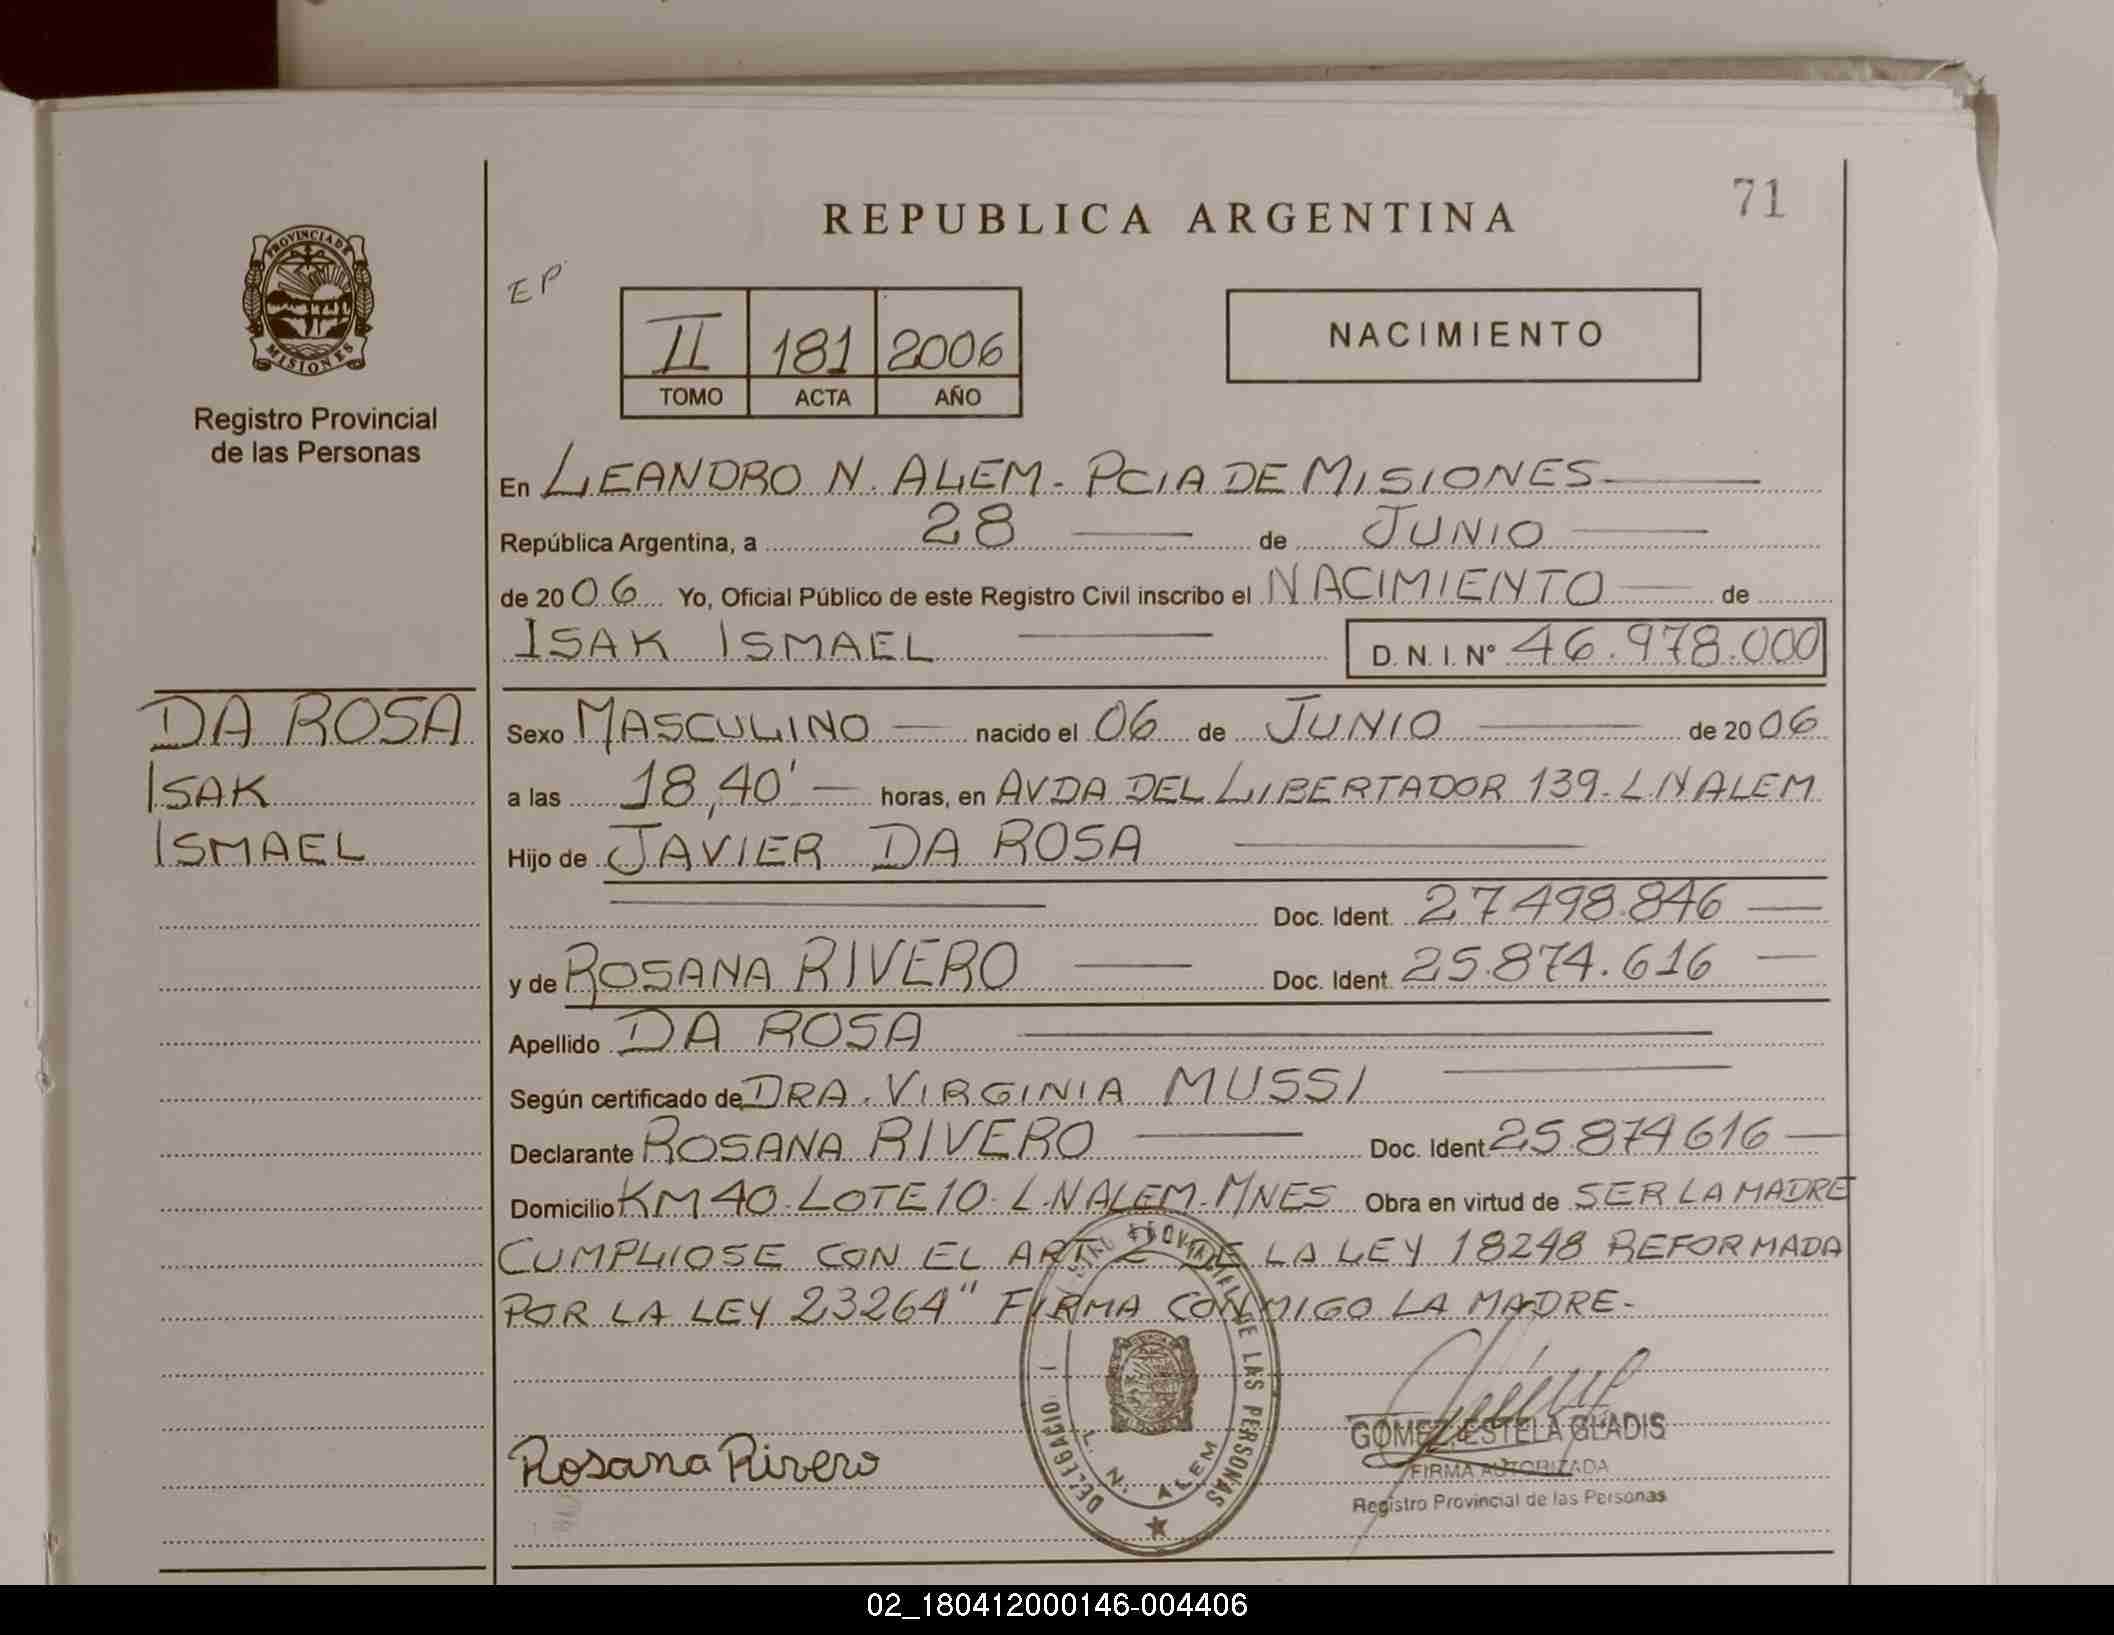 71
REPUBLICA ARGENTINA
PROVINCIA DE
MISIONES
Registro Provincial
de las Personas
EP
II 181 2006
TOMO ACTA AÑO
NACIMIENTO
En LEANDRO N. ALEM - PCIA DE MISIONES
República Argentina, a 28 de JUNIO
de 2006 Yo, Oficial Público de este Registro Civil inscribo el NACIMIENTO de
ISAK ISMAEL D. N. I. Nº 46.978.000
DA ROSA
ISAK
ISMAEL
Sexo MASCULINO nacido el 06 de JUNIO de 2006
a las 18,40' horas, en AVDA DEL LIBERTADOR 139 - L N ALEM
Hijo de JAVIER DA ROSA
Doc. Ident. 27.498.846
y de ROSANA RIVERO Doc. Ident. 25.874.616
Apellido DA ROSA
Según certificado de DRA. VIRGINIA MUSSI
Declarante ROSANA RIVERO Doc. Ident. 25.874616
Domicilio KM 40 - LOTE 10 - L.N ALEM - MNES Obra en virtud de SER LA MADRE
CUMPLIOSE CON EL ART 2 DE LA LEY 18248 REFORMADA
POR LA LEY 23264" FIRMA CONMIGO LA MADRE -
Rosana Rivero
DE LAS PERSONAS
L. N. ALEM
GOMEZ, ESTELA GLADIS
FIRMA AUTORIZADA
Registro Provincial de las Personas
02_180412000146-004406